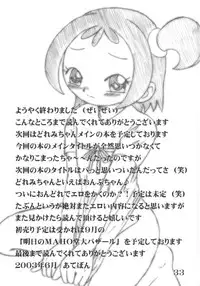 ようやく終わりました（ぜいぜい）
こんなところまで読んでくれてありがとうございます
次回はどれみちゃんメインの本を予定しております
今回の本のメインタイトルが全然思いつかなくて
かなりこまったち〜〜んだったのですが
次回の本のタイトルはパっと思いついたんだってさ（笑）
どれみちゃんといえばおんぷちゃん♪
ついにおんどれでエロをかくのか？！予定は未定（笑）
たぶんというが絶対またエロい内容になると思いますが
また見かけたら読んで頂けると嬉しいです
初売り予定は受かれば9月の
『明日のMAHO堂大バザール』を予定しております
最後まで読んでくれてありがとうございます
2003年6月　あてぽん
33